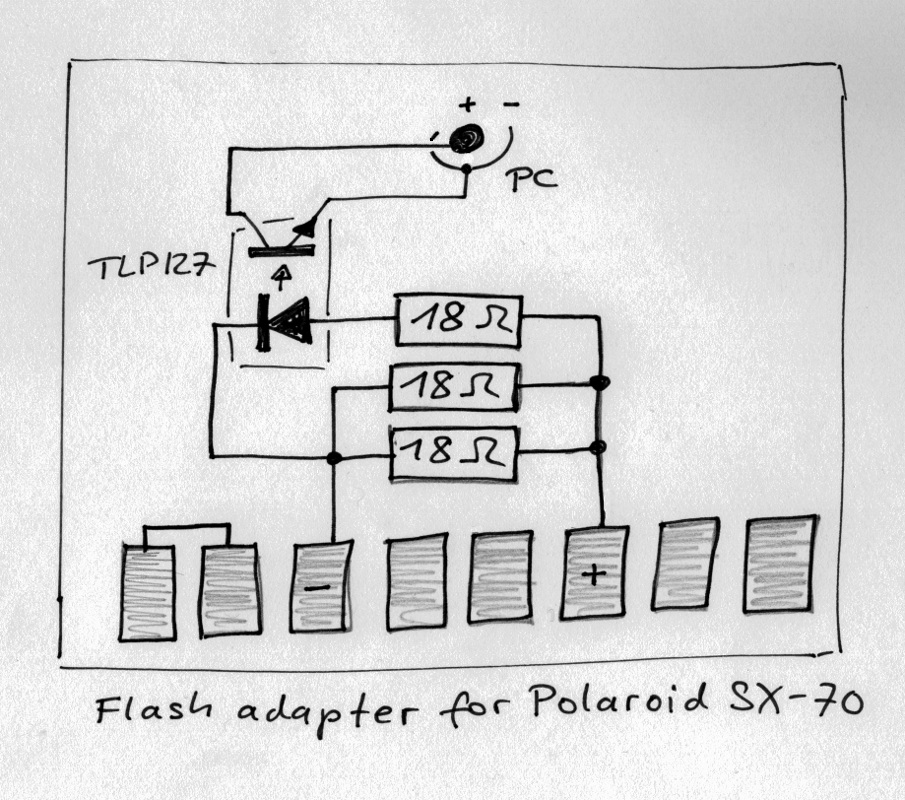 + -
PC
TLP127
18 Ω
18 Ω
18 Ω
- +
Flash adapter for Polaroid SX-70